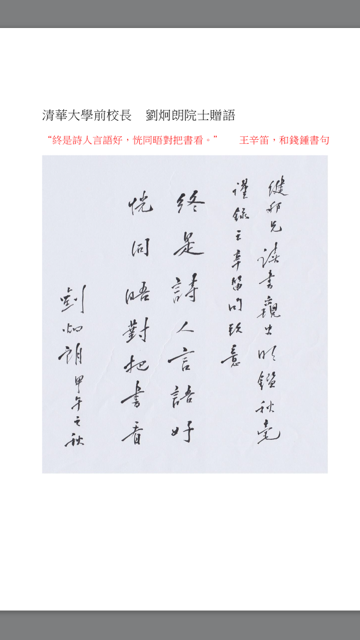 清華大學前校長　劉炯朗院士贈語
“終是詩人言語好，恍同晤對把書看。”　王辛笛，和錢鍾書句
兄 讀書觀 明鑑秋毫
謹錄王辛笛句致意
終是詩人言語好
恍同晤對把書看
劉炯朗 甲午之秋